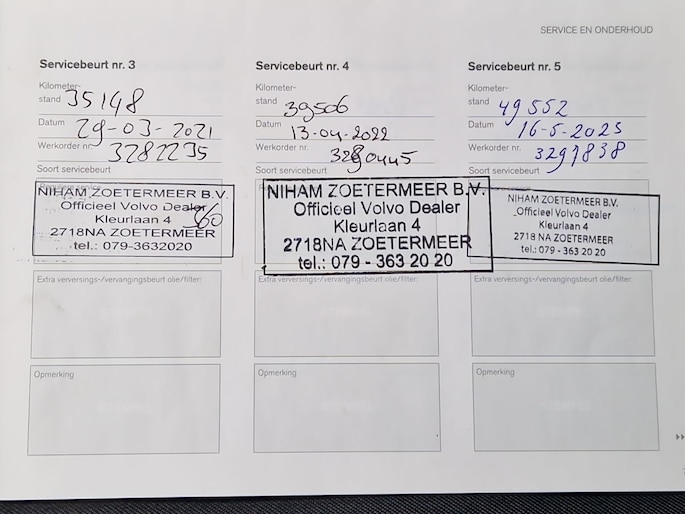 SERVICE EN ONDERHOUD
Servicebeurt nr. 3
Kilometer-
stand 35148
Datum 29-03-2021
Werkorder nr. 3282235
Soort servicebeurt
NIHAM ZOETERMEER B.V.
Officieel Volvo Dealer
Kleurlaan 4
60
2718NA ZOETERMEER
tel.: 079-3632020
Extra verversings-/vervangingsbeurt olie/filter:
Opmerking
Servicebeurt nr. 4
Kilometer-
stand 39506
Datum 13-04-2022
Werkorder nr. 3290445
Soort servicebeurt
NIHAM ZOETERMEER B.V.
Officieel Volvo Dealer
Kleurlaan 4
2718NA ZOETERMEER
tel.: 079 - 363 20 20
Extra verversings-/vervangingsbeurt olie/filter:
Opmerking
Servicebeurt nr. 5
Kilometer-
stand 49552
Datum 16-5-2023
Werkorder nr. 3297838
Soort servicebeurt
NIHAM ZOETERMEER B.V.
Officieel Volvo Dealer
Kleurlaan 4
2718 NA ZOETERMEER
tel.: 079 - 363 20 20
Extra verversings-/vervangingsbeurt olie/filter:
Opmerking